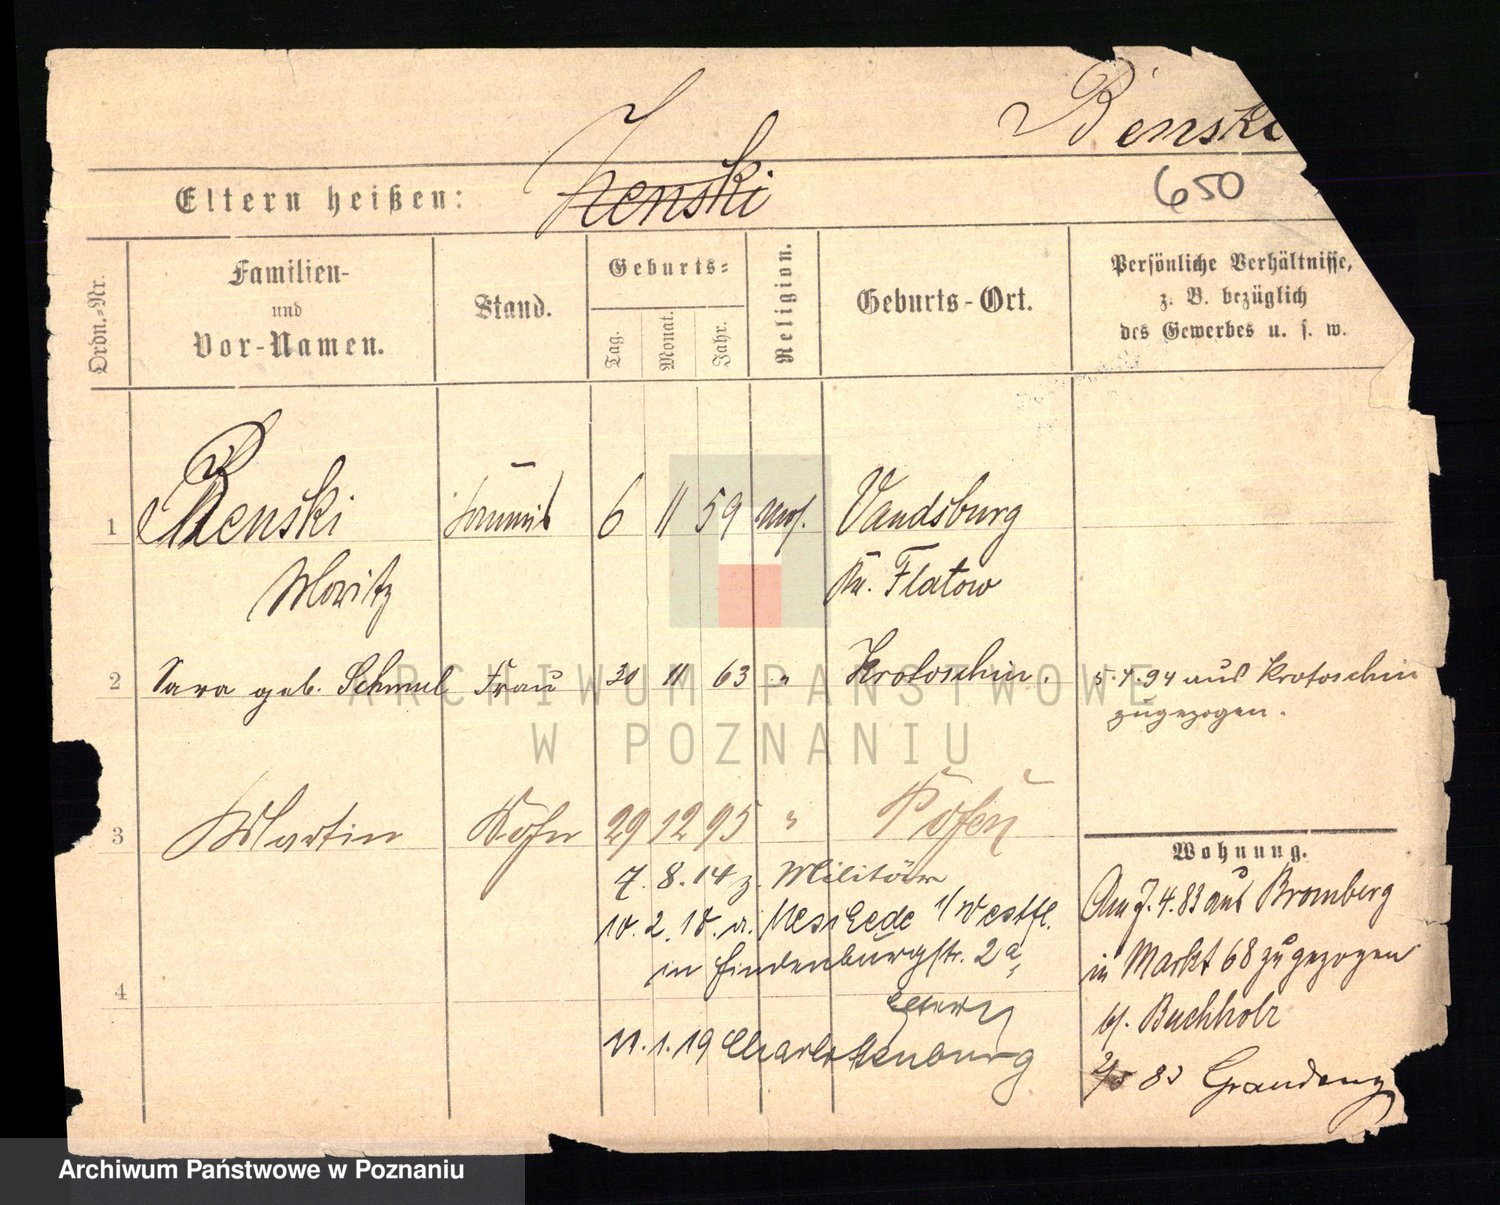 Benski
650
Eltern heißen: Zenski
Ordn.-Nr.
Familien-
und
Vor-Namen.
Stand.
Geburts-
Tag.
Monat.
Jahr.
Religion.
Geburts-Ort.
Persönliche Verhältnisse,
z. B. bezüglich
des Gewerbes u. s. w.
1 Benski Commis 6 11 59 mos. Vandsburg
Moritz Kr. Flatow
2 Sara geb. Schmul Frau 30 11 63 " Krotoschin. 5.4.94 aus Krotoschin
zugezogen.
3 Martin Sohn 29 12 95 " Posen
7.8.14 z. Militär
10.2.18. n. Meschede i/Westfl.
in Hindenburgstr. 2a
4
11.1.19 Charlottenburg
Wohnung.
Am 7.4.83 aus Bromberg
in Markt 68 zugezogen
b/. Buchholz
83 Graudenz
ARCHIWUM PAŃSTWOWE
W POZNANIU
Archiwum Państwowe w Poznaniu